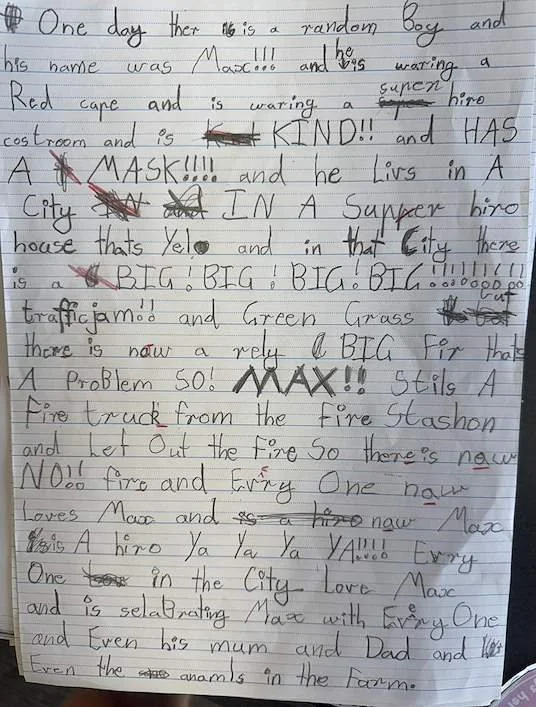 One day ther is a random Boy and
his name was Max!!! and he is waring a
Red cape and is waring a super hiro
costroom and is KIND!! and HAS
A MASK!!!! and he Livs in A
City IN A Supper hiro
house thats Yelo and in that City there
is a BIG! BIG! BIG! BIG!!!!!!!!!
trafficjam!! and Green Grass but
there is naw a rely BIG Fir thats
A ProBlem SO! MAX!! Stils A
Fire truck from the fire Stashon
and Let Out the Fire So there is naw
NO!! fire and Evry One naw
Loves Max and naw Max
is A hiro Ya Ya Ya YA!!!! Evry
One in the City Love Max
and is selaBrating Max with Evry One
and Even his mum and Dad and
Even the anamls in the Farm.